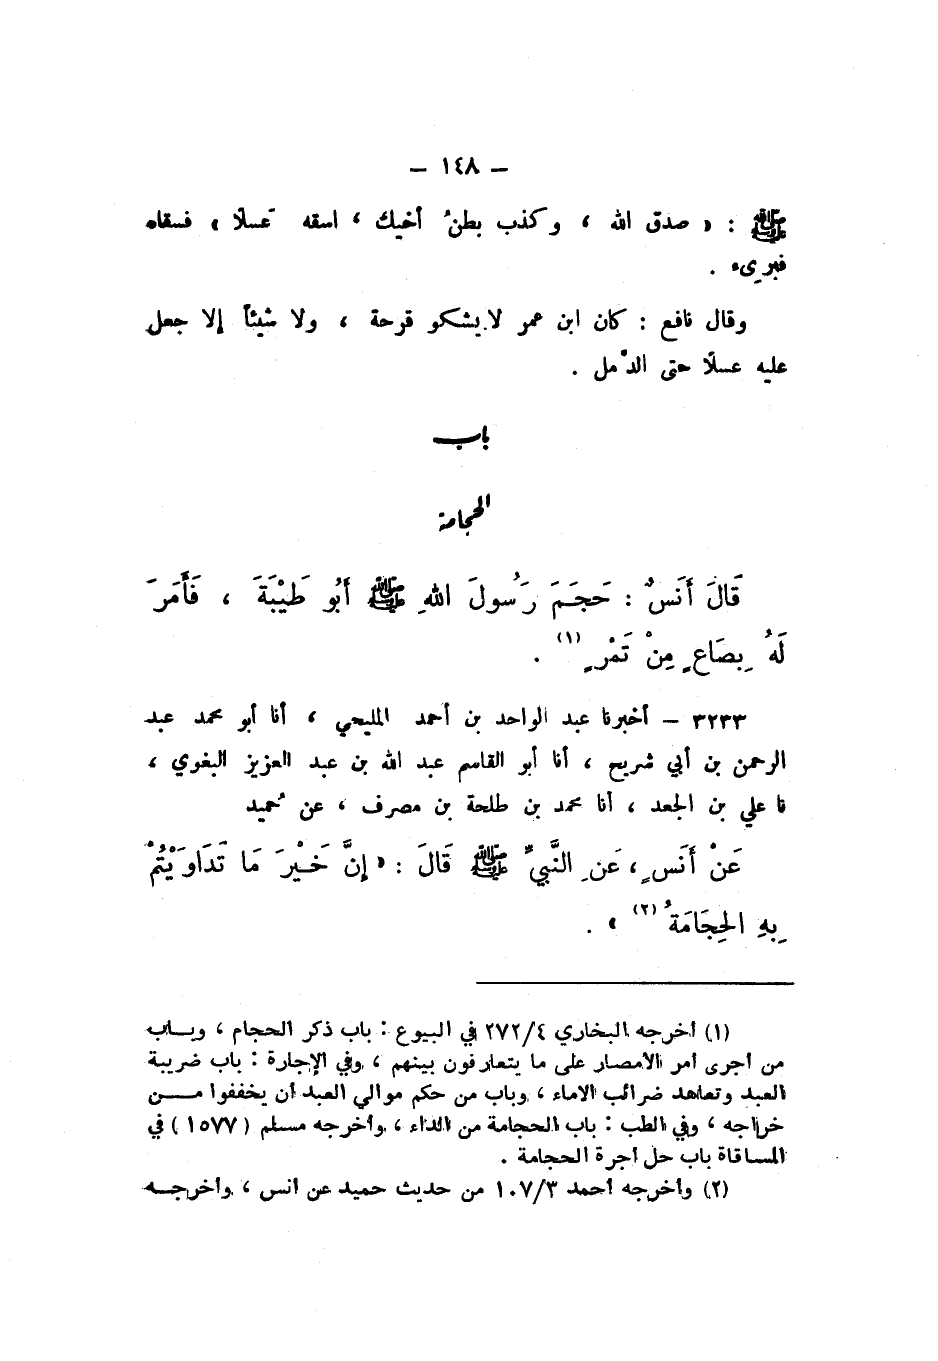 – ١٤٨ –
ﷺ : « صدق الله ، وكذب بطنُ أخيك ، اسقه عَسلاً » فسقاه
فبرىء .
وقال نافع : كان ابن عمر لا يشكو قرحة ، ولا شيئاً إلا جعل
عليه عسلاً حتى الدُّمل .
باب
الحجامة
قَالَ أَنَسٌ : حَجَمَ رَسُولَ اللهِ ﷺ أَبُو طَيْبَةَ ، فَأَمَرَ
لَهُ بِصَاعٍ مِنْ تَمْرٍ (١) .
٣٢٣٣ – أخبرنا عبد الواحد بن أحمد المليحي ، أنا أبو محمد عبد
الرحمن بن أبي شريح ، أنا أبو القاسم عبد الله بن عبد العزيز البغوي ،
نا علي بن الجعد ، أنا محمد بن طلحة بن مصرف ، عن حُميد
عَنْ أَنَسٍ ، عَنِ النَّبِيِّ ﷺ قَالَ : « إِنَّ خَيْرَ مَا تَدَاوَيْتُمْ
بِهِ الحِجَامَةُ (٢) » .
(١) أخرجه البخاري ٢٧٢/٤ في البيوع : باب ذكر الحجام ، وباب
من أجرى أمر الأمصار على ما يتعارفون بينهم ، وفي الإجارة : باب ضريبة
العبد وتعاهد ضرائب الاماء ، وباب من حكم موالي العبد أن يخففوا من
خراجه ، وفي الطب : باب الحجامة من الداء ، وأخرجه مسلم ( ١٥٧٧ ) في
المساقاة باب حل أجرة الحجامة .
(٢) وأخرجه أحمد ١٠٧/٣ من حديث حميد عن أنس ، وأخرجه